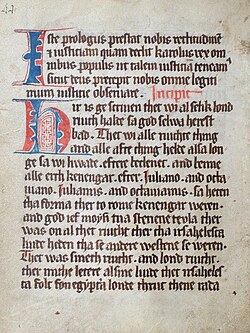 Iste prologus prestat nobis rectitudinē
⁊ iusticiam quam dedit karolus rex om
nibus populis ut talem iusticiā teneant
sicut deus precepit nobis omne legiti
mum iusticie obseruare. Incipit
Hir is ge scriuen thet wi alsek lond
riucht hake sa god selwa herest
bad. Ther wi alle riuchte thing
and alle afte thing heke alsa lon
ge sa wi liwath. efrest kedener. and keme
alle erth kenengar. efter. Juliano. and octa
uiano. Julianus. and octauianus. sa heten
tha forma ther to rome kenengar weren.
and god ief moysi tua stenene tevla ther
was on al ther riucht ther tha irsahelesca
liude heden tha se andere westene se weren.
Ther was sineth riucht. and lond riucht.
ther michte letere alsine liude ther irsahelesc
ta folc fon egypta londe thruc thene rada